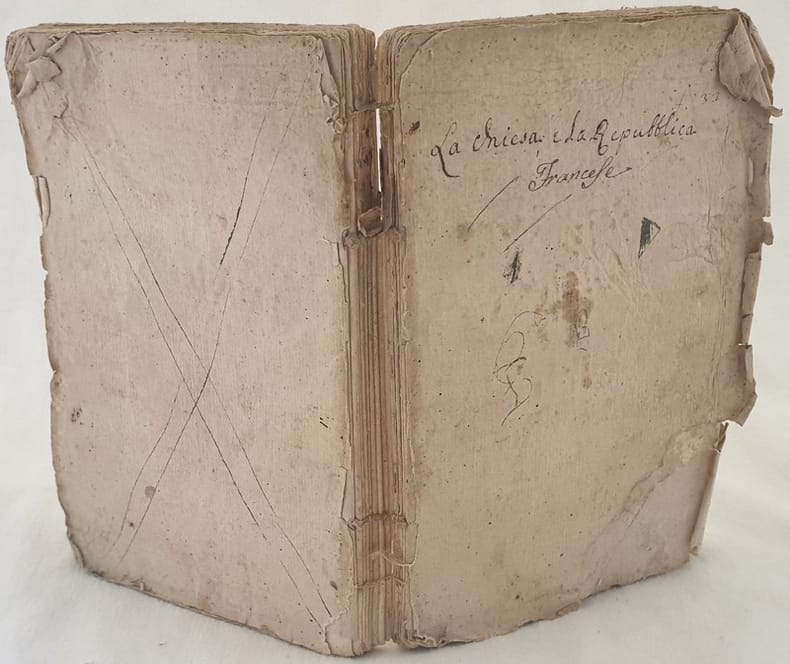 La Chiesa, e La Repubblica
Francese